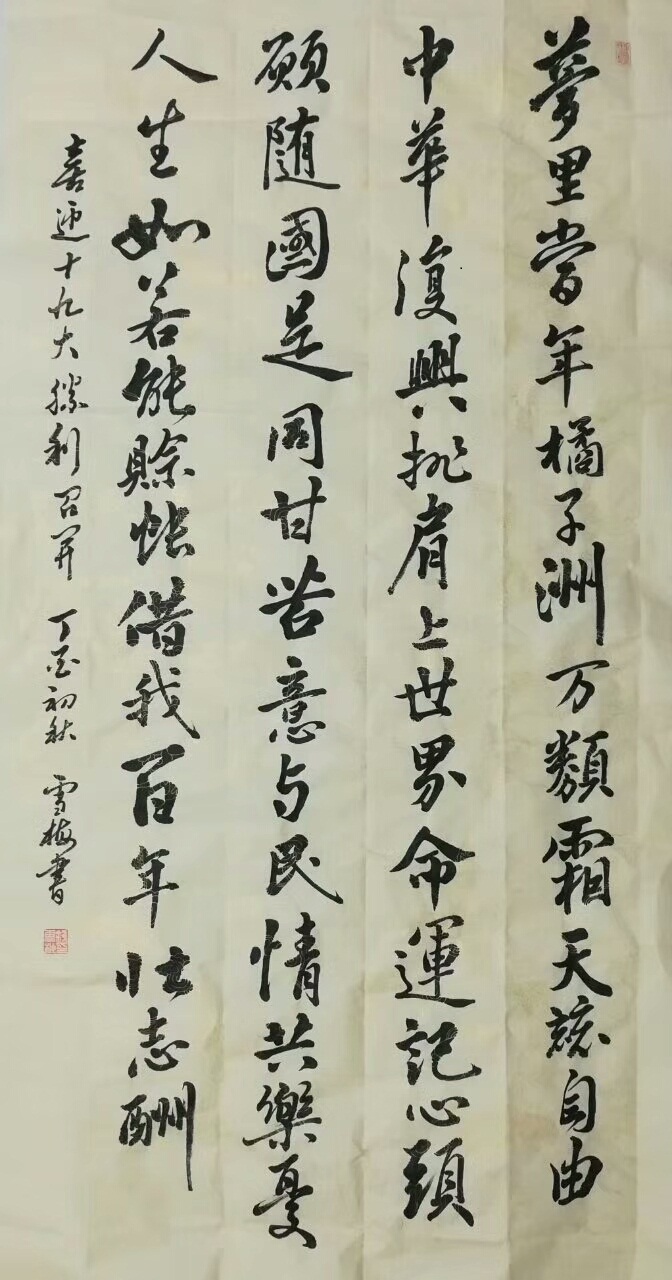 夢里當年橘子洲万類霜天競自由
中華復興挑肩上世界命運記心頭
願随國足同甘苦意与民情共樂憂
人生如若能賒帐借我百年壮志酬
喜迎十九大勝利召开 丁酉初秋 雪梅書